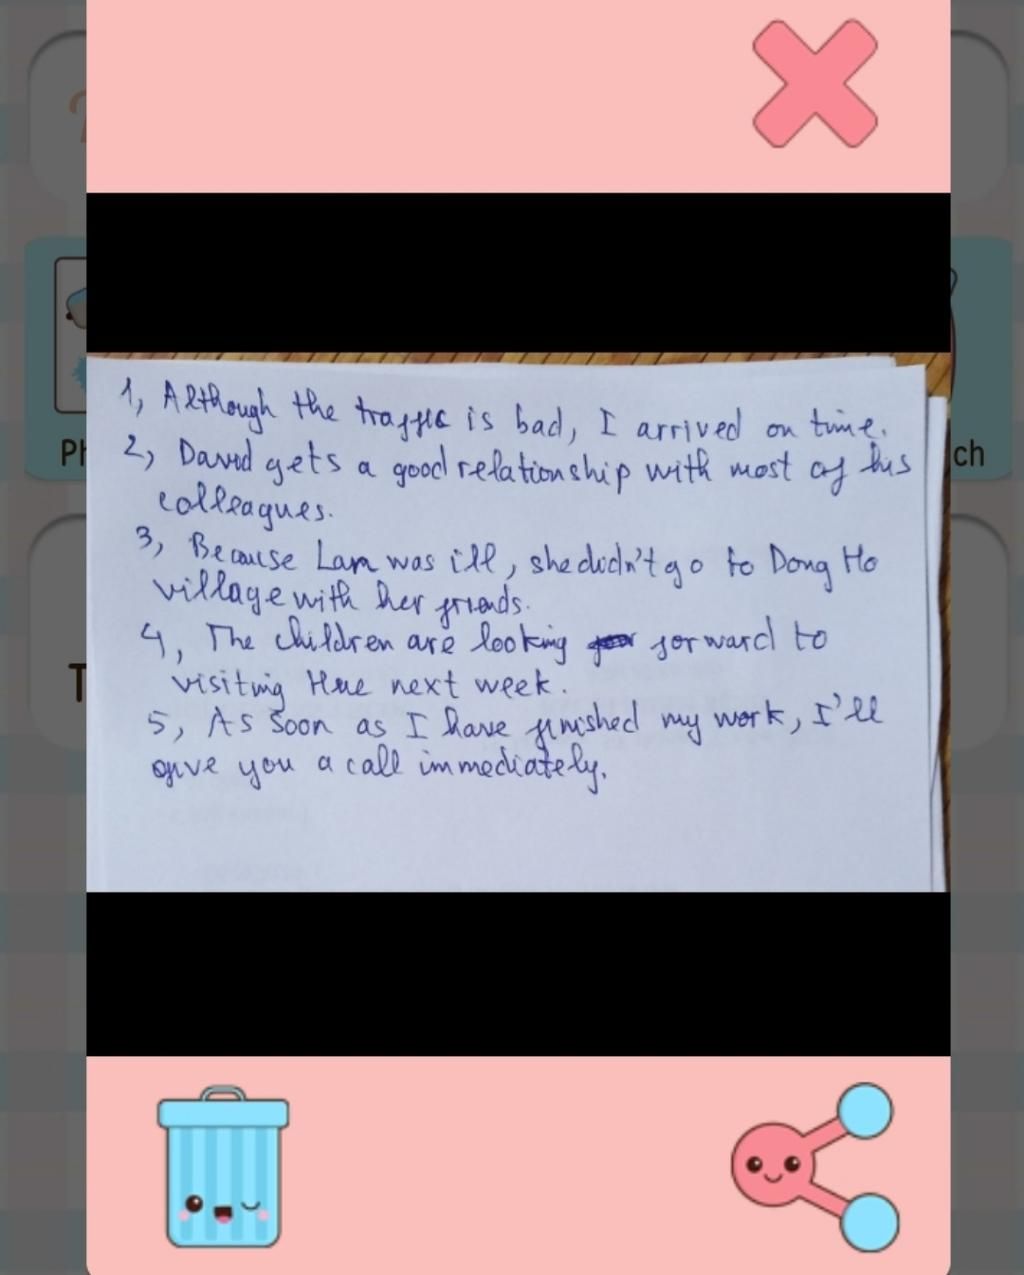 1, Although the traffic is bad, I arrived on time.
2, David gets a good relationship with most of his
colleagues.
3, Because Lan was ill, she didn't go to Dong Ho
village with her friends.
4, The children are looking forward to
visiting Hue next week.
5, As soon as I have finished my work, I'll
give you a call immediately.
Ph
ch
T